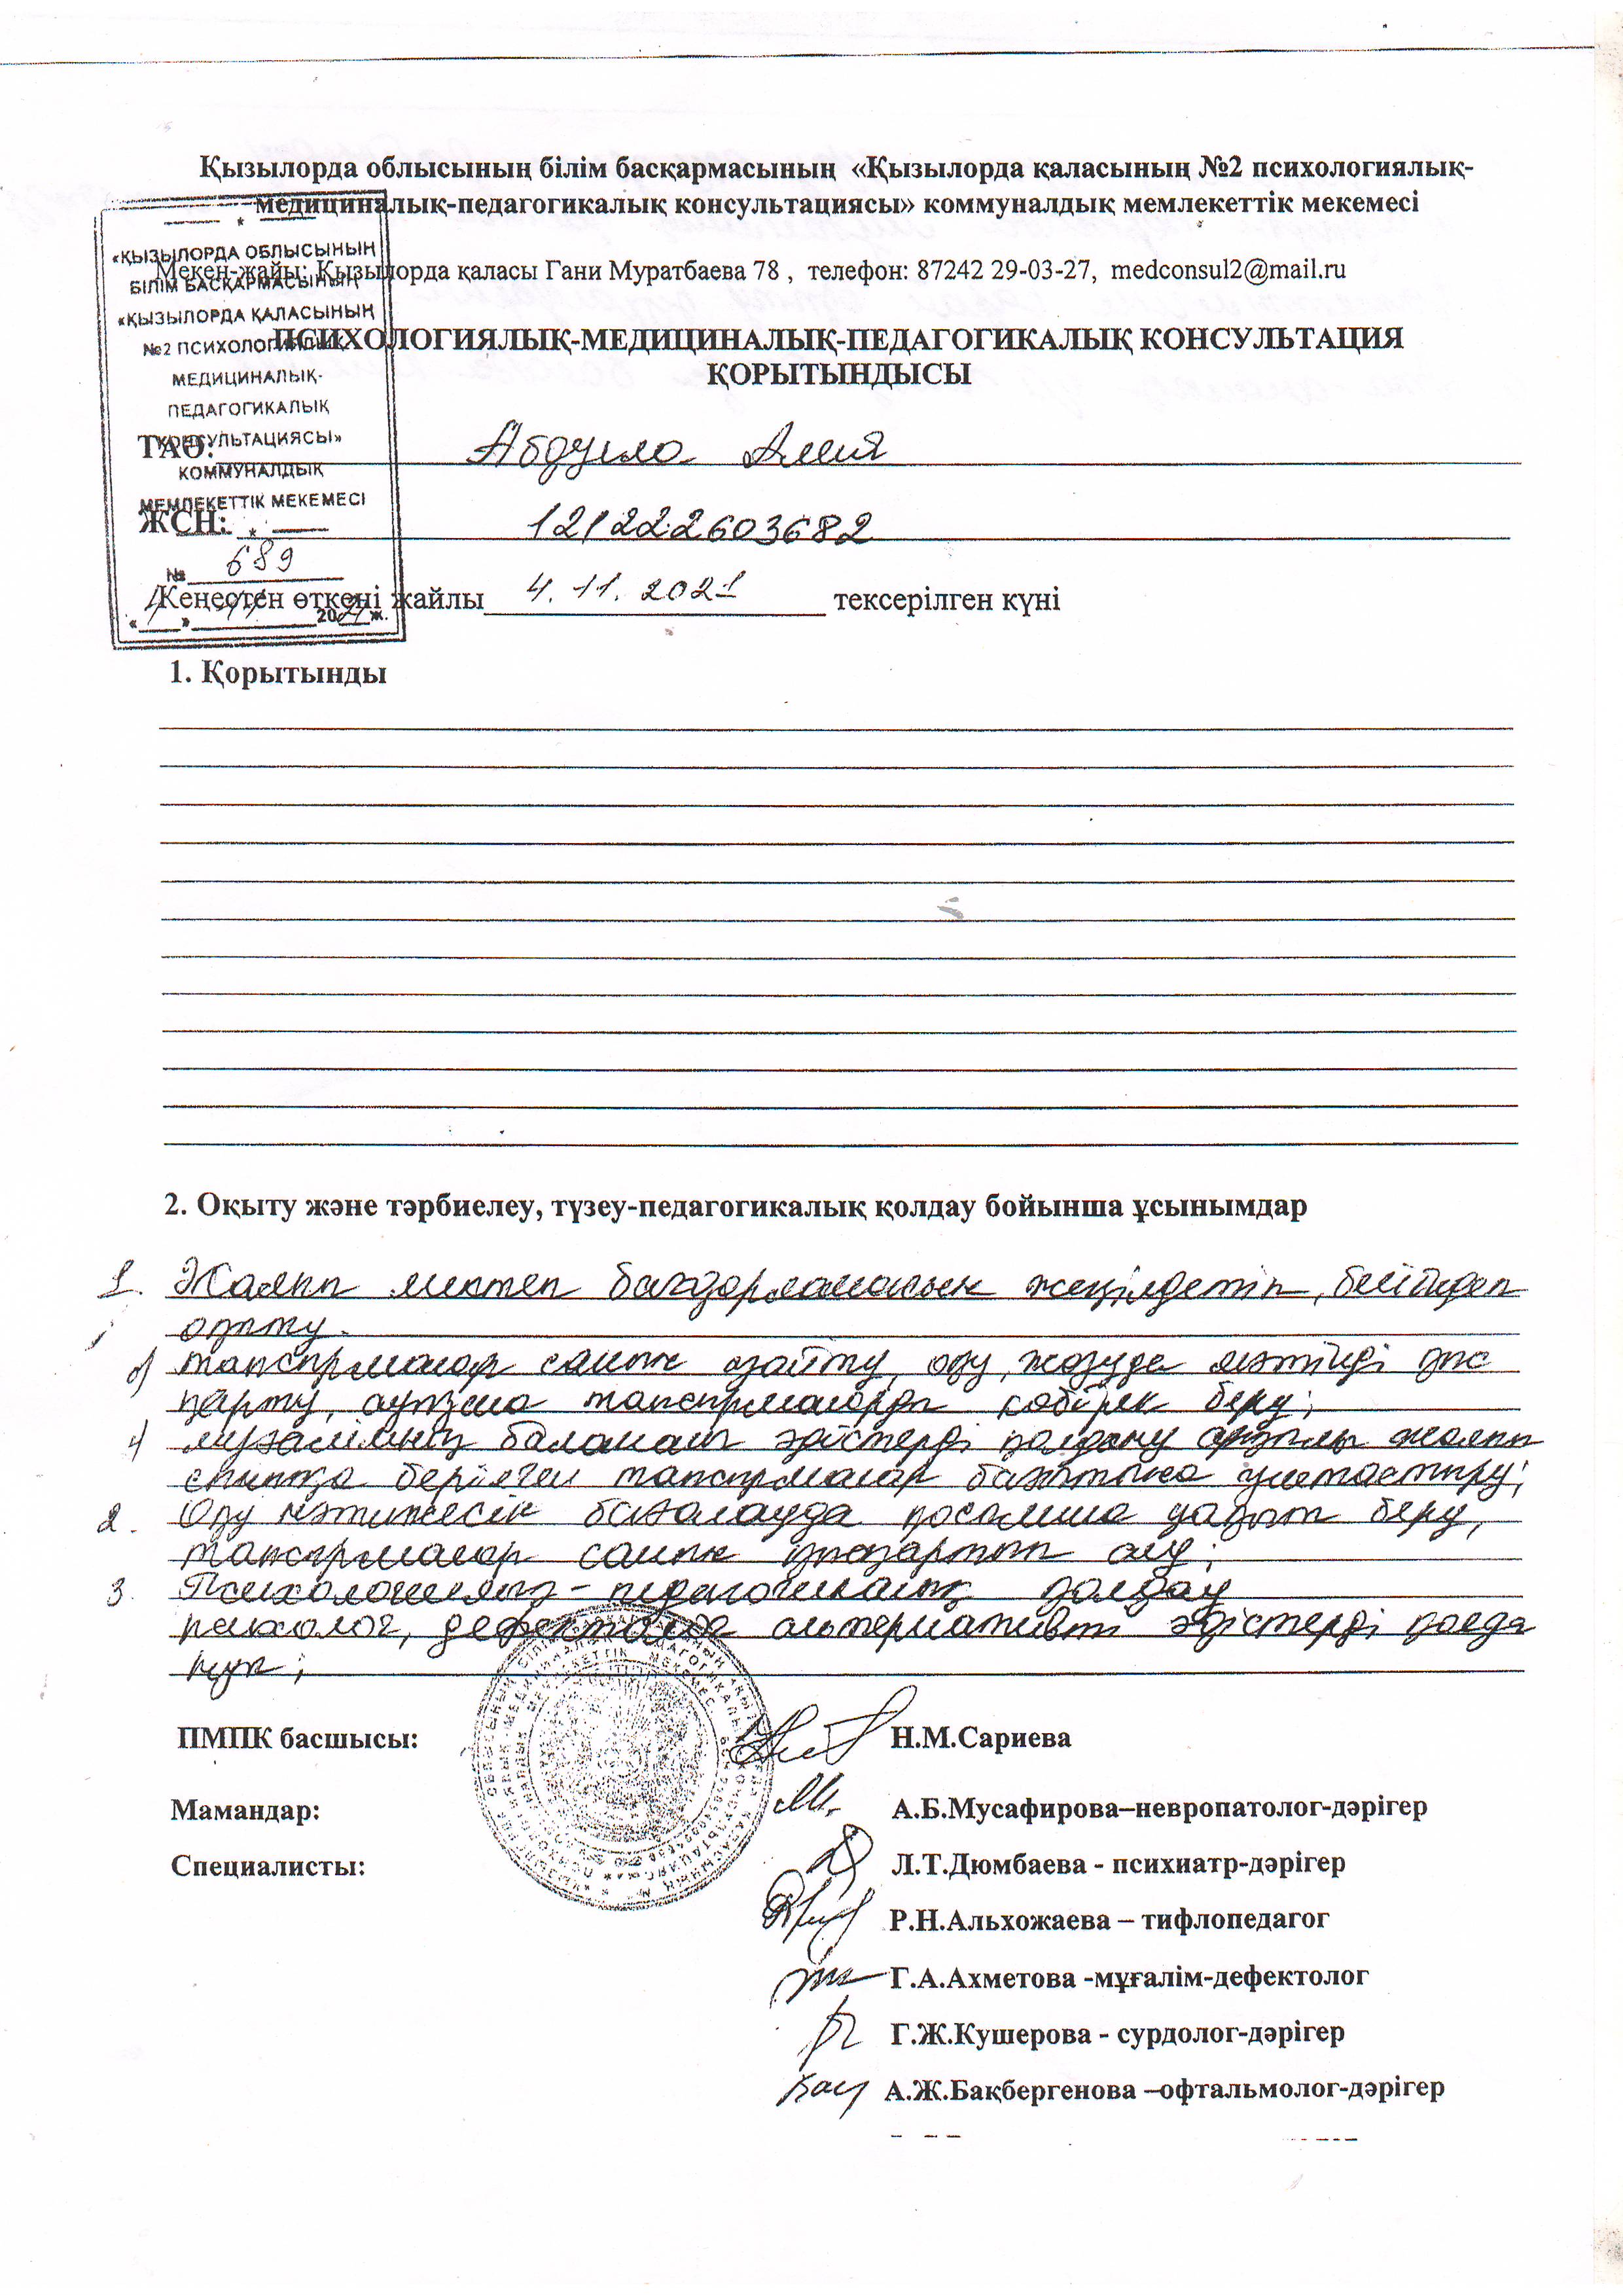 Қызылорда облысының білім басқармасының «Қызылорда қаласының №2 психологиялық-
медициналық-педагогикалық консультациясы» коммуналдық мемлекеттік мекемесі
Мекен-жайы: Қызылорда қаласы Гани Муратбаева 78 , телефон: 87242 29-03-27, medconsul2@mail.ru
«ҚЫЗЫЛОРДА ОБЛЫСЫНЫҢ
БІЛІМ БАСҚАРМАСЫНЫҢ
«ҚЫЗЫЛОРДА ҚАЛАСЫНЫҢ
№2 ПСИХОЛОГИЯЛЫҚ-
МЕДИЦИНАЛЫҚ-
ПЕДАГОГИКАЛЫҚ
КОНСУЛЬТАЦИЯСЫ»
КОММУНАЛДЫҚ
МЕМЛЕКЕТТІК МЕКЕМЕСІ
№ 689
«4» 11. 2021 ж.
ПСИХОЛОГИЯЛЫҚ-МЕДИЦИНАЛЫҚ-ПЕДАГОГИКАЛЫҚ КОНСУЛЬТАЦИЯ
ҚОРЫТЫНДЫСЫ
ТАӘ: Абдулла Алия
ЖСН: 121222603682
Кеңестен өткені жайлы 4. 11. 2021 тексерілген күні
1. Қорытынды
2. Оқыту және тәрбиелеу, түзеу-педагогикалық қолдау бойынша ұсынымдар
1. Жалпы мектеп бағдарламасын жеңілдетіп, бейімдеп
оқыту.
тапсырмалар санын азайту, оқу, жазуда мәтінді қыс
қарту, ауызша тапсырмаларды көбірек беру;
мұғалімнің баламалы әдістерді қолдану арқылы жалпы
сыныпқа берілген тапсырмалар бағытына ұштастыру;
2. Оқу нәтижесін бағалауда қосымша уақыт беру,
тапсырмалар санын қысқартып алу;
3. Психологиялық-педагогикалық қолдау
психолог, дефектолог альтернативті әдістерді қолда
нуы;
ПМПК басшысы: Н.М.Сариева
Мамандар: А.Б.Мусафирова–невропатолог-дәрігер
Специалисты: Л.Т.Дюмбаева - психиатр-дәрігер
Р.Н.Альхожаева – тифлопедагог
Г.А.Ахметова -мұғалім-дефектолог
Г.Ж.Кушерова - сурдолог-дәрігер
А.Ж.Бақбергенова –офтальмолог-дәрігер